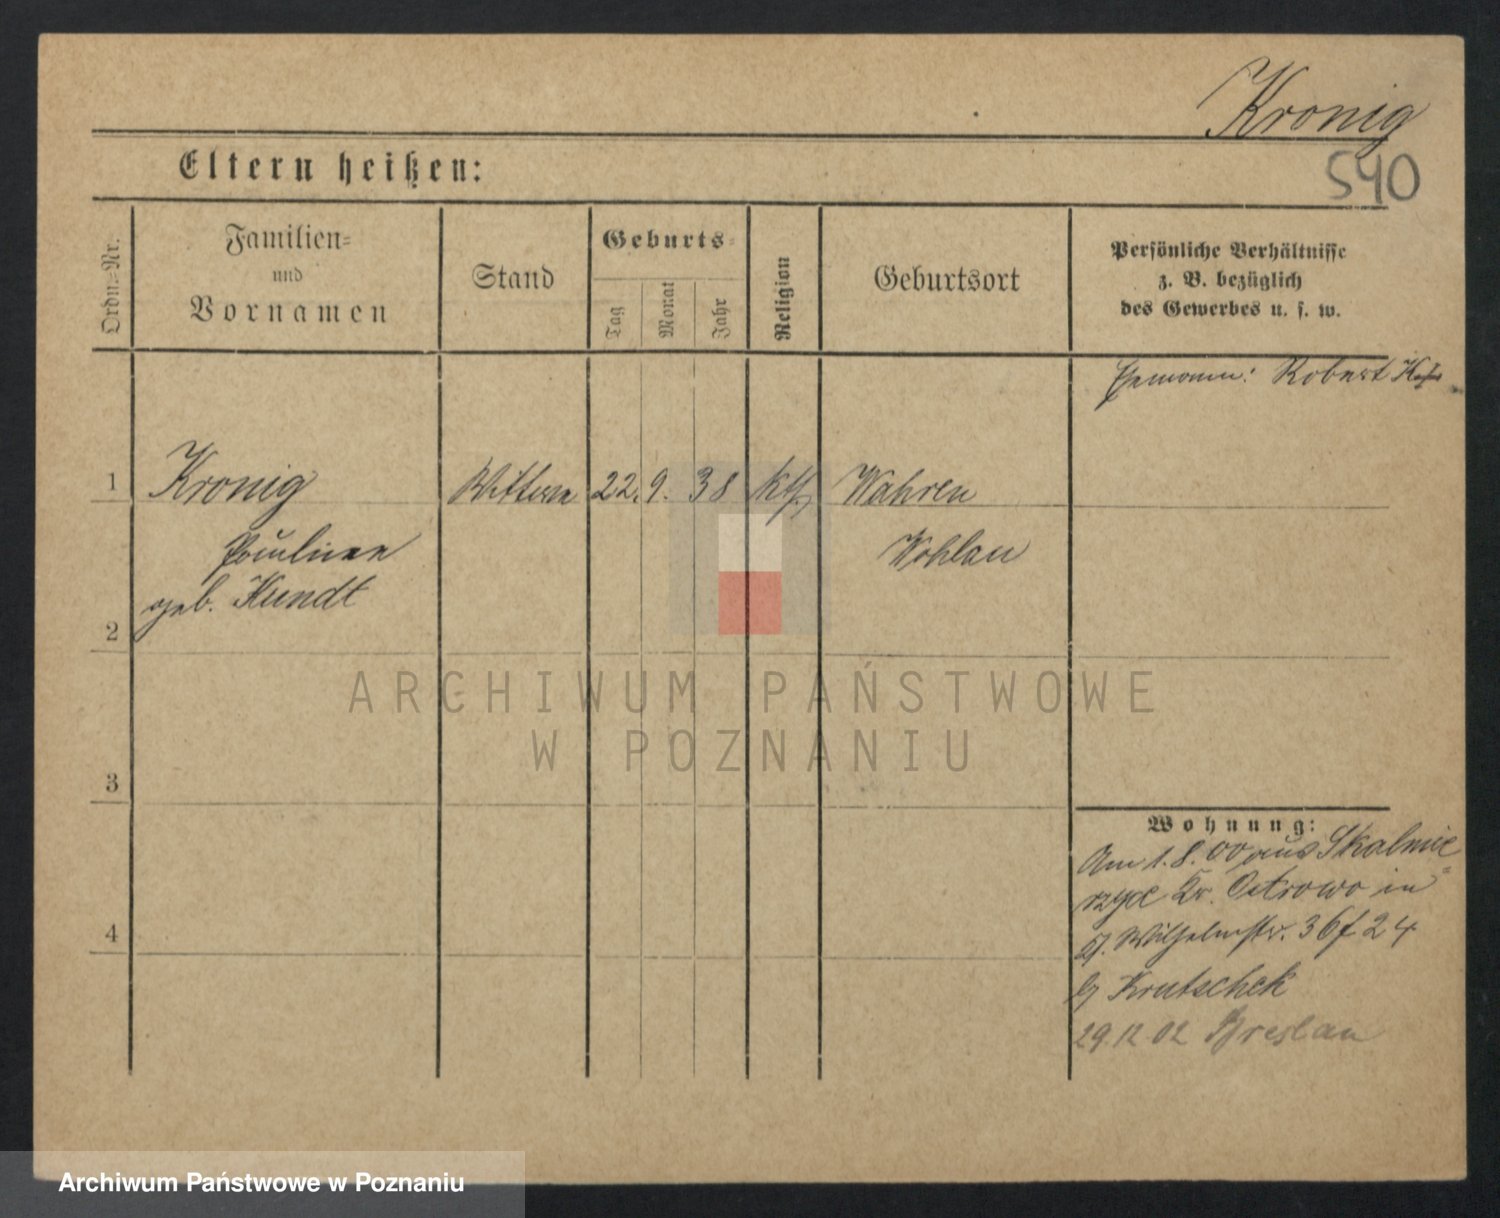 Kronig
Eltern heißen:
540
Ordn.-Nr.
Familien-
und
Vornamen
Stand
Geburts-
Tag
Monat
Jahr
Religion
Geburtsort
Persönliche Verhältnisse
z. B. bezüglich
des Gewerbes u. s. w.
Ehemann: Robert K.
1 Kronig Wittwe 22. 9. 38 kth Wahren
Paulinen Wohlau
geb. Hundt
2
ARCHIWUM PAŃSTWOWE
W POZNANIU
3
Wohnung:
Am 1.8.00 aus Skalmie
rzyce Kr. Ostrowo in
Wilhelmstr. 36 f 24
b/ Krutschek
29.12 02 Breslau
4
Archiwum Państwowe w Poznaniu